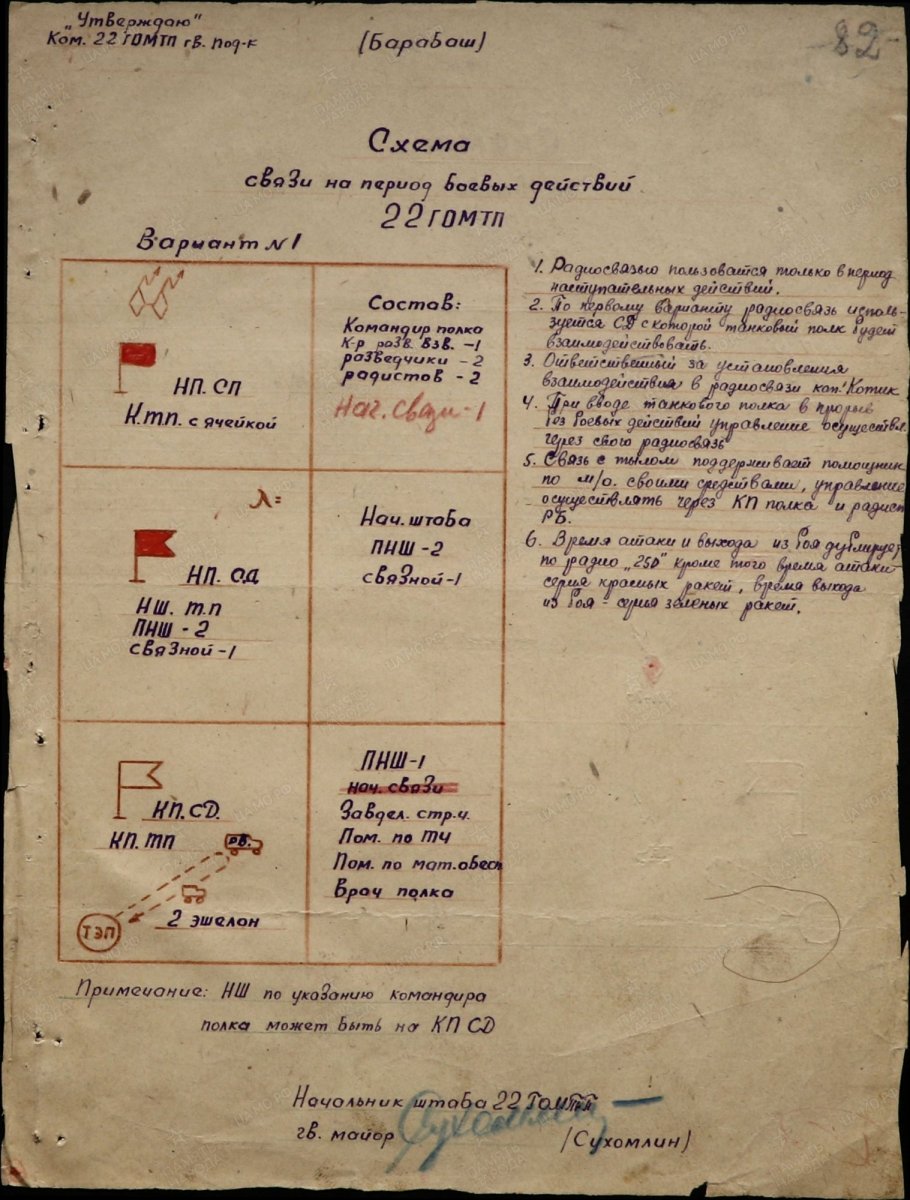 „Утверждаю"
Ком. 22 ГОМТП гв. под-к (Барабаш)
82
Схема
связи на период боевых действий
22 ГОМТП
Вариант №1
НП. СП
К.тп. с ячейкой
Состав:
Командир полка
К-р разв. взв. -1
разведчики - 2
радистов - 2
Нач. связи - 1
НП. СД
НШ. т.п
ПНШ - 2
связной - 1
Нач. штаба
ПНШ - 2
связной - 1
КП. СД.
КП. тп
РБ.
2 эшелон
ТЭП
ПНШ-1
нач. связи
Завдел. стр.ч.
Пом. по ТЧ
Пом. по мат. обесп
Врач полка
1. Радиосвязью пользоватся только в период
наступательных действий.
2. По первому варианту радиосвязь исполь-
зуется СД с которой танковый полк будет
взаимодействовать.
3. Ответственный за установления
взаимодействия в радиосвязи кап. Котик
4. При вводе танкового полка в прорыв
без боевых действий управление осуществл.
через свого радиосвязь
5. Связь с тылом поддерживает помощник
по м/о. своими средствами, управление
осуществлять через КП полка и радист
РБ.
6. Время атаки и выхода из боя дублирует
по радио „250" кроме того время атаки-
серия красных ракет, время выхода
из боя - серья зеленых ракет.
Примечание: НШ по указанию командира
полка может быть на КП СД
Начальник штаба 22 ГОМТП
гв. майор Сухомлин /Сухомлин)